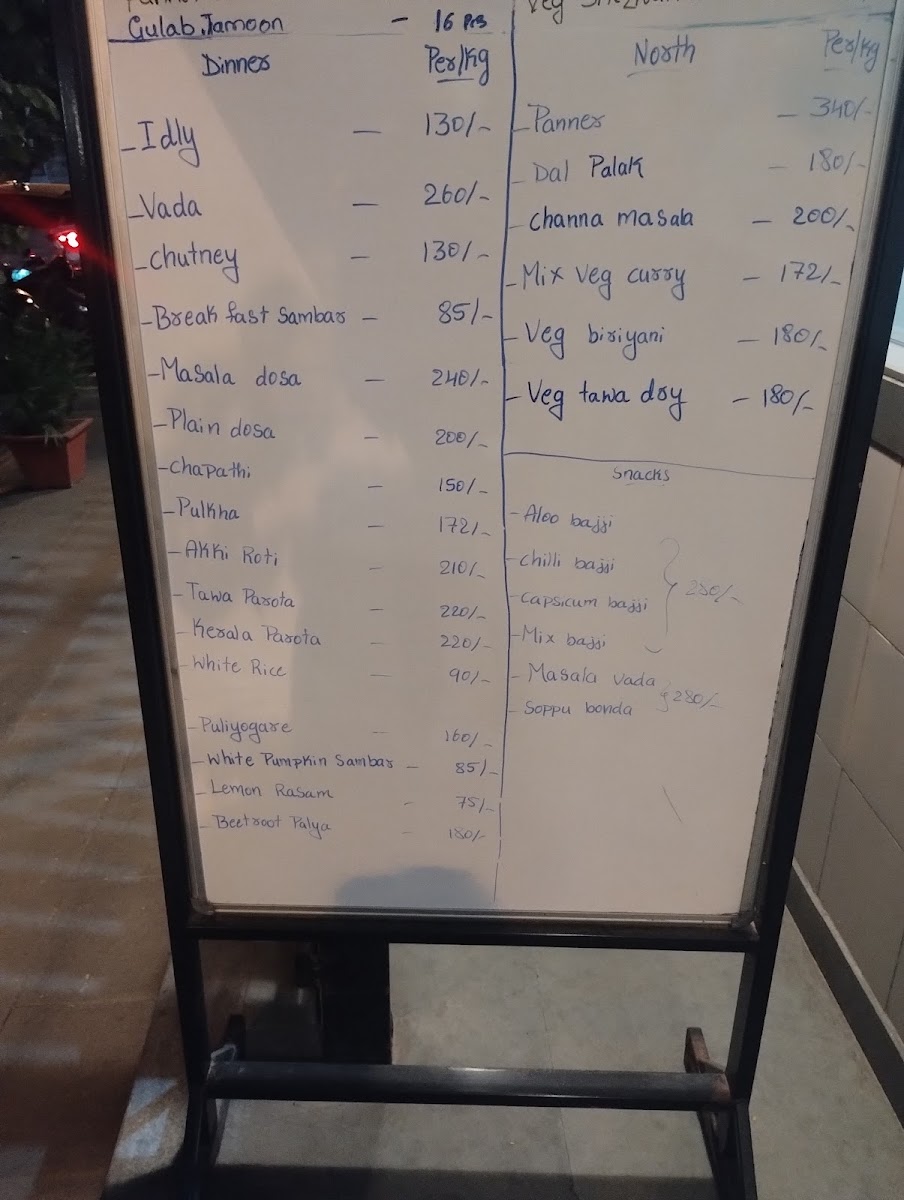 Gulab Jamoon - 16 Pcs
Dinner Per/Kg
- Idly - 130/-
- Vada - 260/-
- Chutney - 130/-
- Break fast Sambar - 85/-
- Masala dosa - 240/-
- Plain dosa - 200/-
- Chapathi - 150/-
- Pulkha - 172/-
- AKKi Roti - 210/-
- Tawa Parota - 220/-
- Kerala Parota - 220/-
- White Rice - 90/-
- Puliyogare - 160/-
- White Pumpkin Sambar - 85/-
- Lemon Rasam - 75/-
- Beetroot Palya - 180/-
Veg
North Per/Kg
- Panner - 340/-
- Dal Palak - 180/-
- Channa masala - 200/-
- Mix Veg curry - 172/-
- Veg biriyani - 180/-
- Veg tawa dry - 180/-
Snacks
- Aloo bajji
- Chilli bajji
- Capsicum bajji
- Mix bajji
- Masala vada
- Soppu bonda
280/-